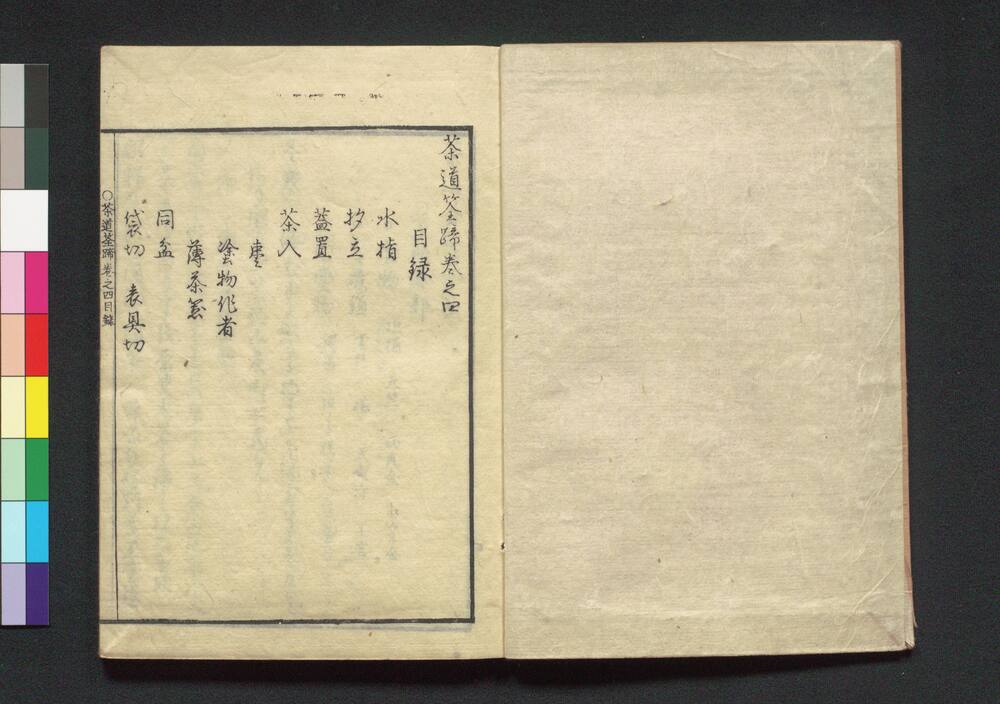 茶道筌蹄巻之四
目録
水指
杓立
蓋置
茶入
棗
塗物作者
薄茶器
同盆
袋切 表具切
○茶道筌蹄巻之四目録